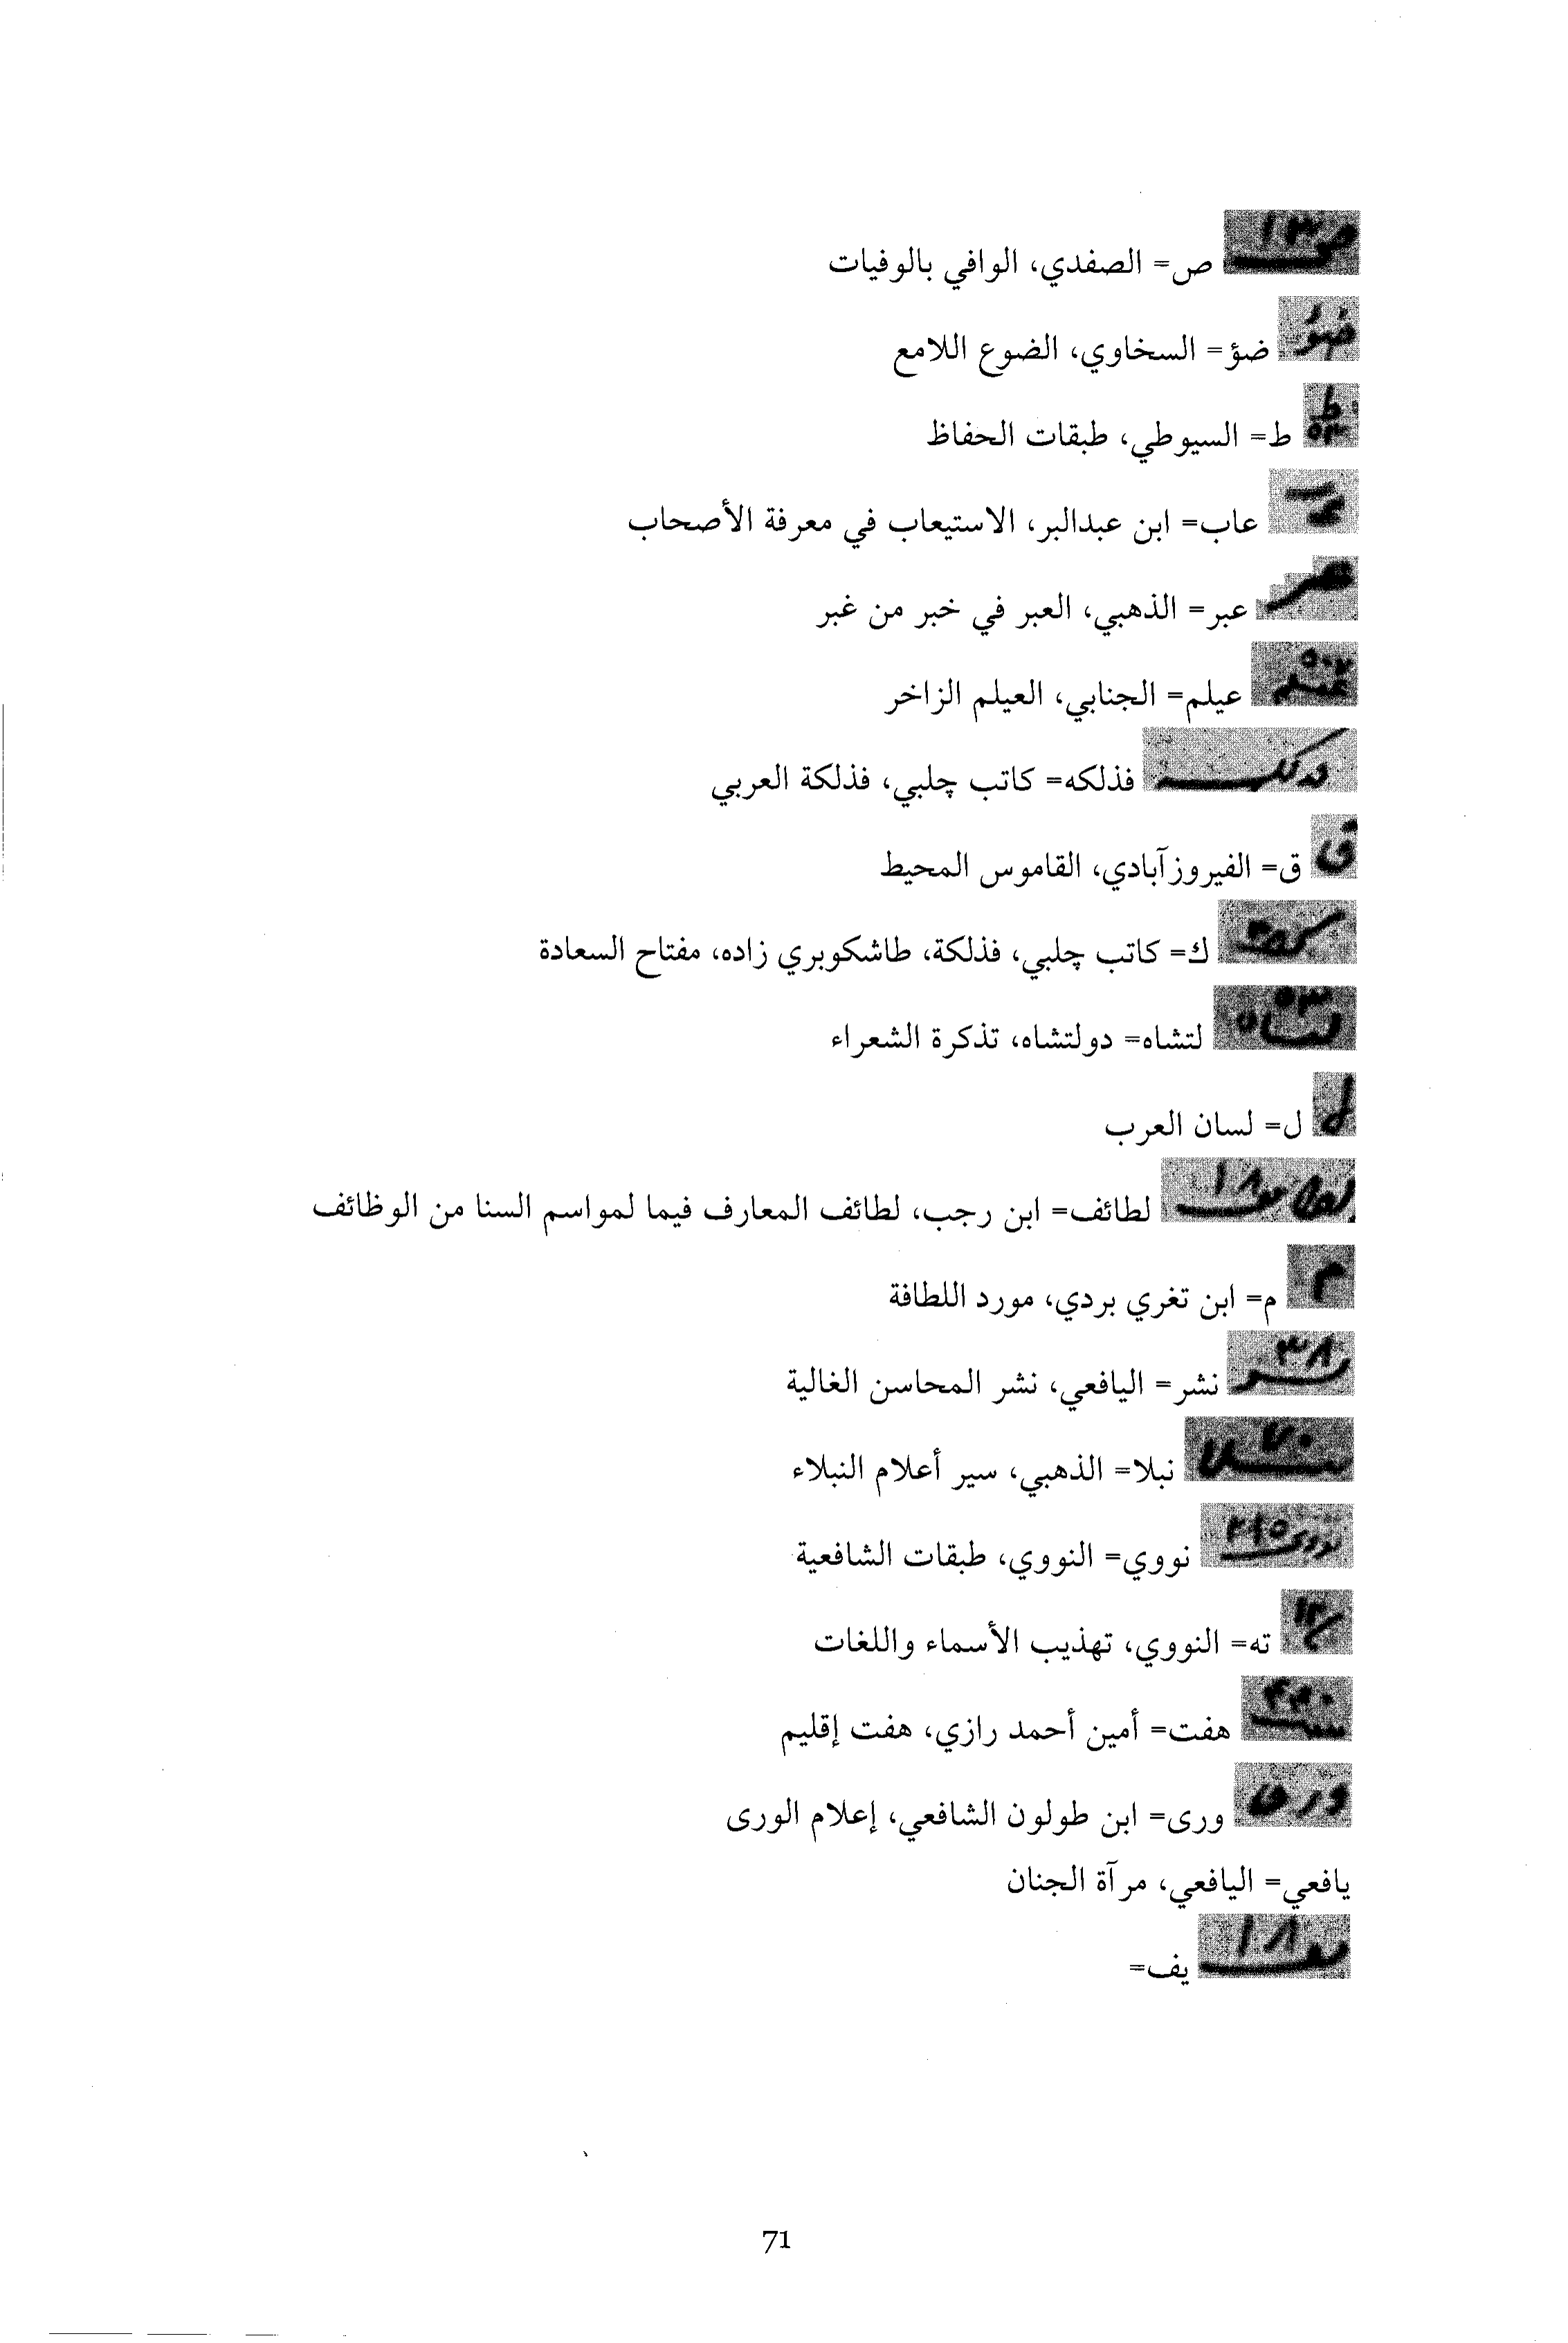 ص= الصفدي، الوافي بالوفيات
ضؤ= السخاوي، الضوع اللامع
ط= السيوطي، طبقات الحفاظ
عاب= ابن عبدالبر، الاستيعاب في معرفة الأصحاب
عبر= الذهبي، العبر في خبر من غبر
عيلم= الجنابي، العيلم الزاخر
فذلكه= كاتب چلبي، فذلكة العربي
ق= الفيروزآبادي، القاموس المحيط
ك= كاتب چلبي، فذلكة، طاشكوبري زاده، مفتاح السعادة
لتشاه= دولتشاه، تذكرة الشعراء
ل= لسان العرب
لطائف= ابن رجب، لطائف المعارف فيما لمواسم السنا من الوظائف
م= ابن تغري بردي، مورد اللطافة
نشر= اليافعي، نشر المحاسن الغالية
نبلا= الذهبي، سير أعلام النبلاء
نووي= النووي، طبقات الشافعية
ته= النووي، تهذيب الأسماء واللغات
هفت= أمين أحمد رازي، هفت إقليم
ورى= ابن طولون الشافعي، إعلام الورى
يافعي= اليافعي، مرآة الجنان
يف=
71